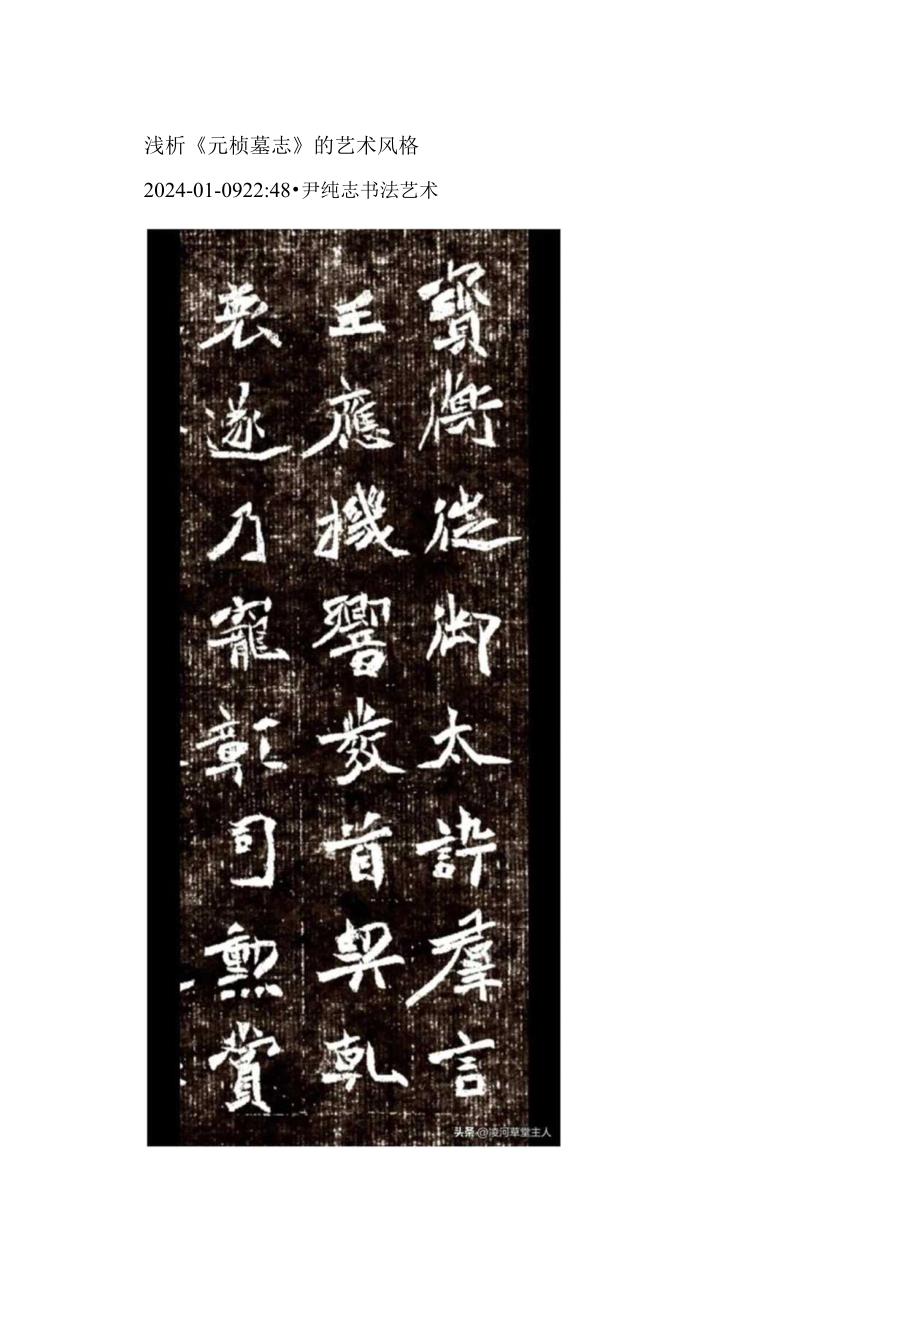 浅析《元桢墓志》的艺术风格
2024-01-0922:48•尹纯志书法艺术
寶衡徙御太訊羣言
王應機響發首契乾
衷遂乃寵彰司勲賞
头条@凌河草堂主人